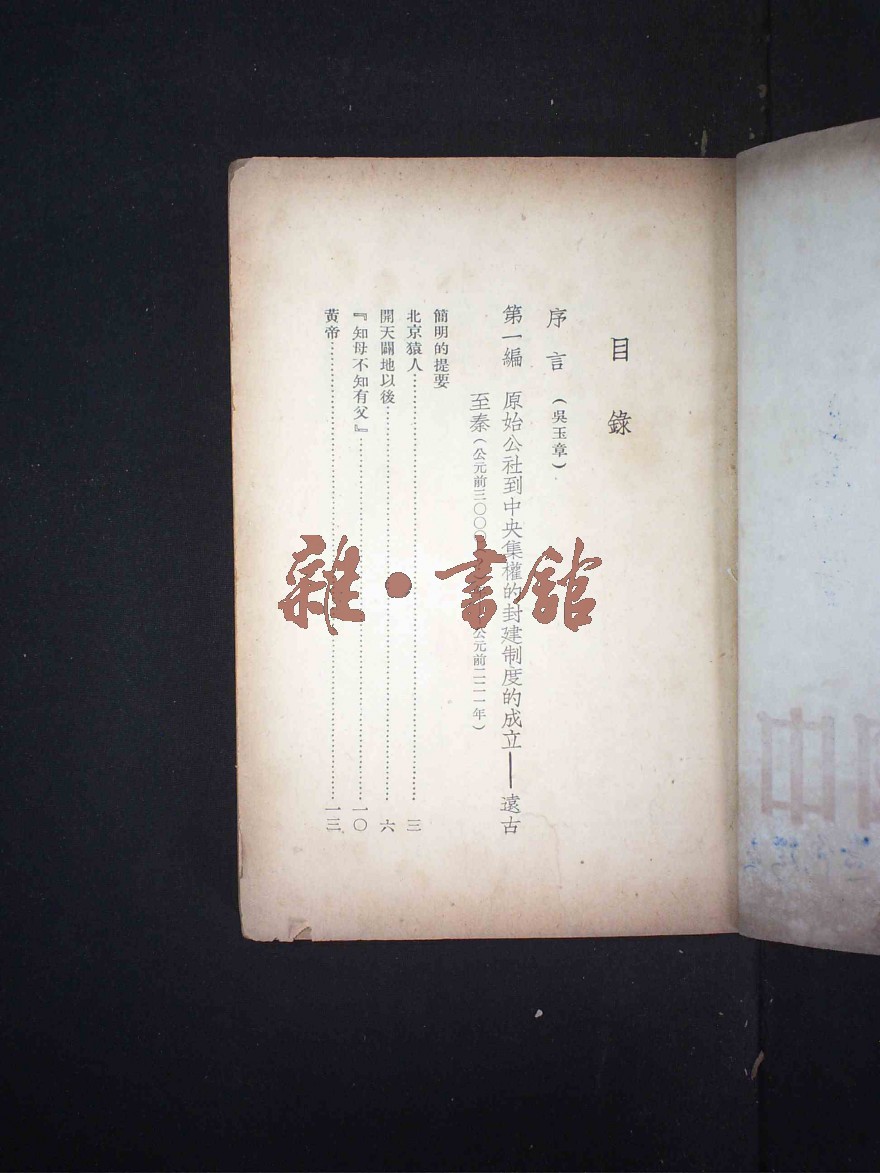 目錄
序言（吳玉章）
第一編 原始公社到中央集權的封建制度的成立——遠古
至秦（公元前三〇〇〇 公元前二二一年）
簡明的提要
北京猿人……三
開天闢地以後……六
『知母不知有父』……一〇
黃帝……一三
雜·書館